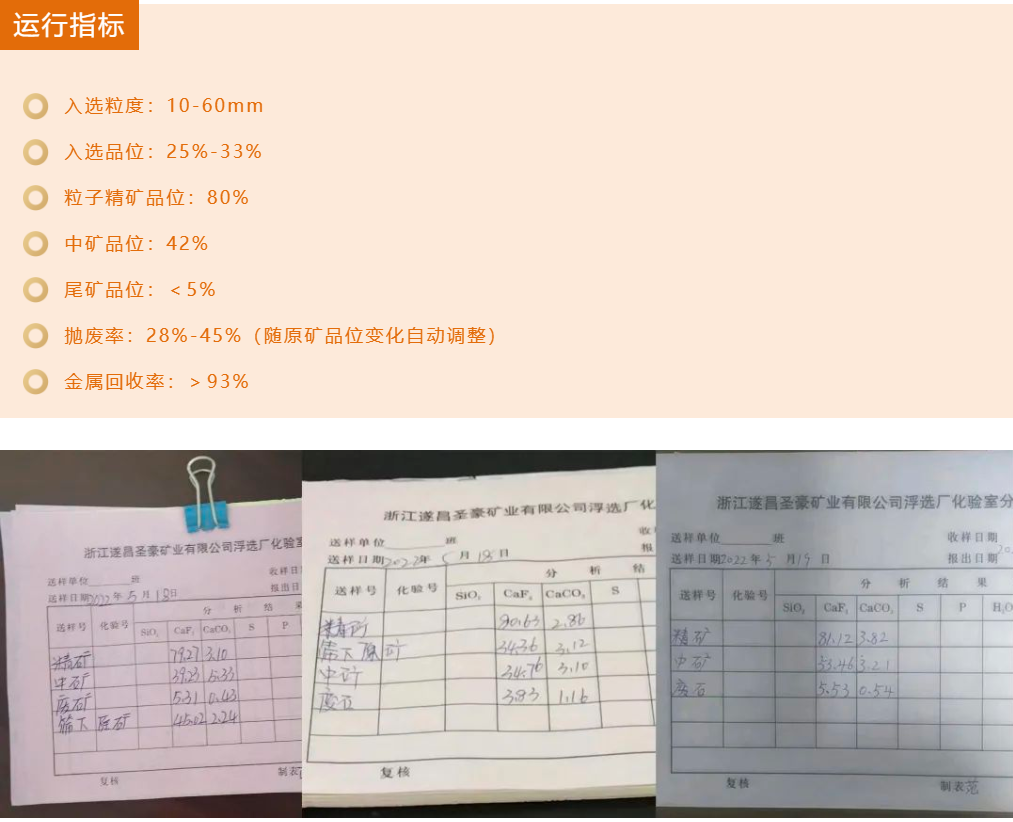 运行指标
入选粒度：10-60mm
入选品位：25%-33%
粒子精矿品位：80%
中矿品位：42%
尾矿品位：＜5%
抛废率：28%-45%（随原矿品位变化自动调整）
金属回收率：＞93%
浙江遂昌圣豪矿业有限公司浮选厂化验室
送样单位 班 收样日
送样日期2022年5月18日 报出日
分 析 结 果
送样号 化验号 SiO₂ CaF₂ CaCO₃ S P
精矿 79.27 3.10
中矿 39.23 5.33
废矿 5.31 0.43
筛下原矿 45.02 2.24
复核 制表
浙江遂昌圣豪矿业有限公司浮选厂化
送样单位 班 收
送样日期2022年5月18日 报
分 析 结
送样号 化验号 SiO₂ CaF₂ CaCO₃ S
精矿 80.63 2.86
筛下原矿 34.36 3.12
中矿 34.76 3.10
废石 3.83 1.16
复核
浙江遂昌圣豪矿业有限公司浮选厂化验室分
送样单位 班 收样日期
送样日期2022年5月19日 报出日期20
分 析 结 果
送样号 化验号 SiO₂ CaF₂ CaCO₃ S P H₂O
精矿 81.12 3.82
中矿 33.46 3.21
废石 5.53 0.54
复核 制表范